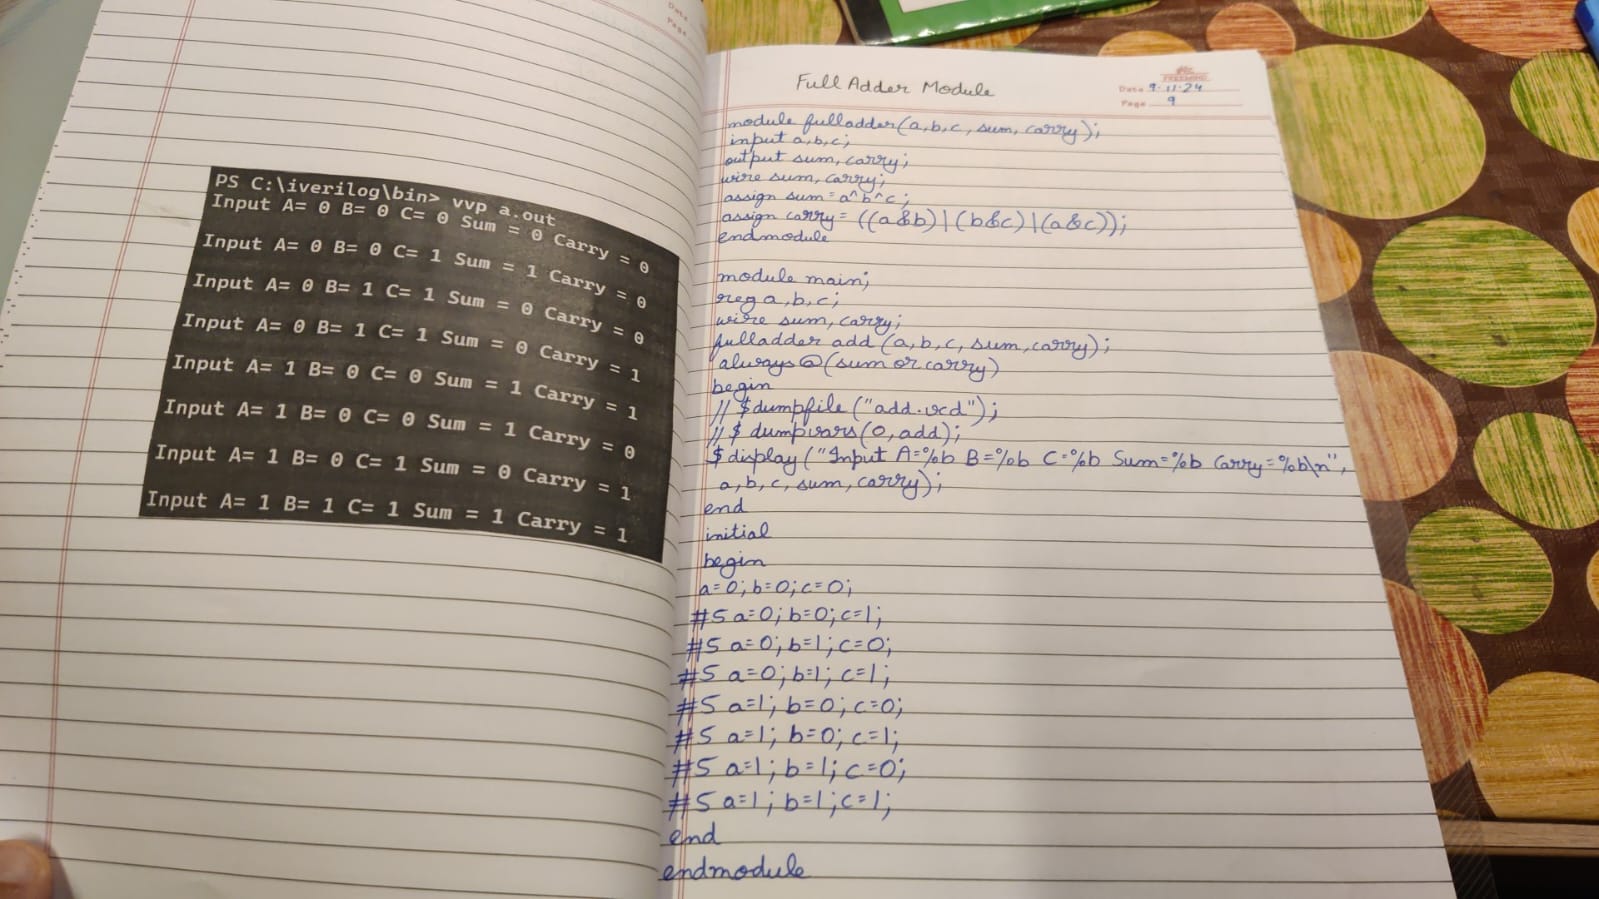 PS C:\iverilog\bin> vvp a.out
Input A= 0 B= 0 C= 0 Sum = 0 Carry = 0
Input A= 0 B= 0 C= 1 Sum = 1 Carry = 0
Input A= 0 B= 1 C= 1 Sum = 0 Carry = 0
Input A= 0 B= 1 C= 1 Sum = 0 Carry = 1
Input A= 1 B= 0 C= 0 Sum = 1 Carry = 1
Input A= 1 B= 0 C= 0 Sum = 1 Carry = 0
Input A= 1 B= 0 C= 1 Sum = 0 Carry = 1
Input A= 1 B= 1 C= 1 Sum = 1 Carry = 1
Date
Page
Full Adder Module
FREEMIND
Date 9.11.24
Page 9
module fulladder(a,b,c, sum, carry);
input a,b,c;
output sum, carry;
wire sum, carry;
assign sum=a^b^c;
assign carry= ((a&b)|(b&c)|(a&c));
endmodule
module main;
reg a,b,c;
wire sum, carry;
fulladder add (a,b,c, sum, carry);
always@(sum or carry)
begin
// $dumpfile ("add.vcd");
// $ dumpvars(0, add);
$ display ("Input A=%b B=%b C=%b Sum=%b Carry=%b\n",
a,b,c, sum, carry);
end
initial
begin
a=0; b=0; c=0;
#5 a=0; b=0; c=1;
#5 a=0; b=1; c=0;
#5 a=0; b=1; c=1;
#5 a=1; b=0; c=0;
#5 a=1; b=0; c=1;
#5 a=1; b=1; c=0;
#5 a=1; b=1; c=1;
end
endmodule